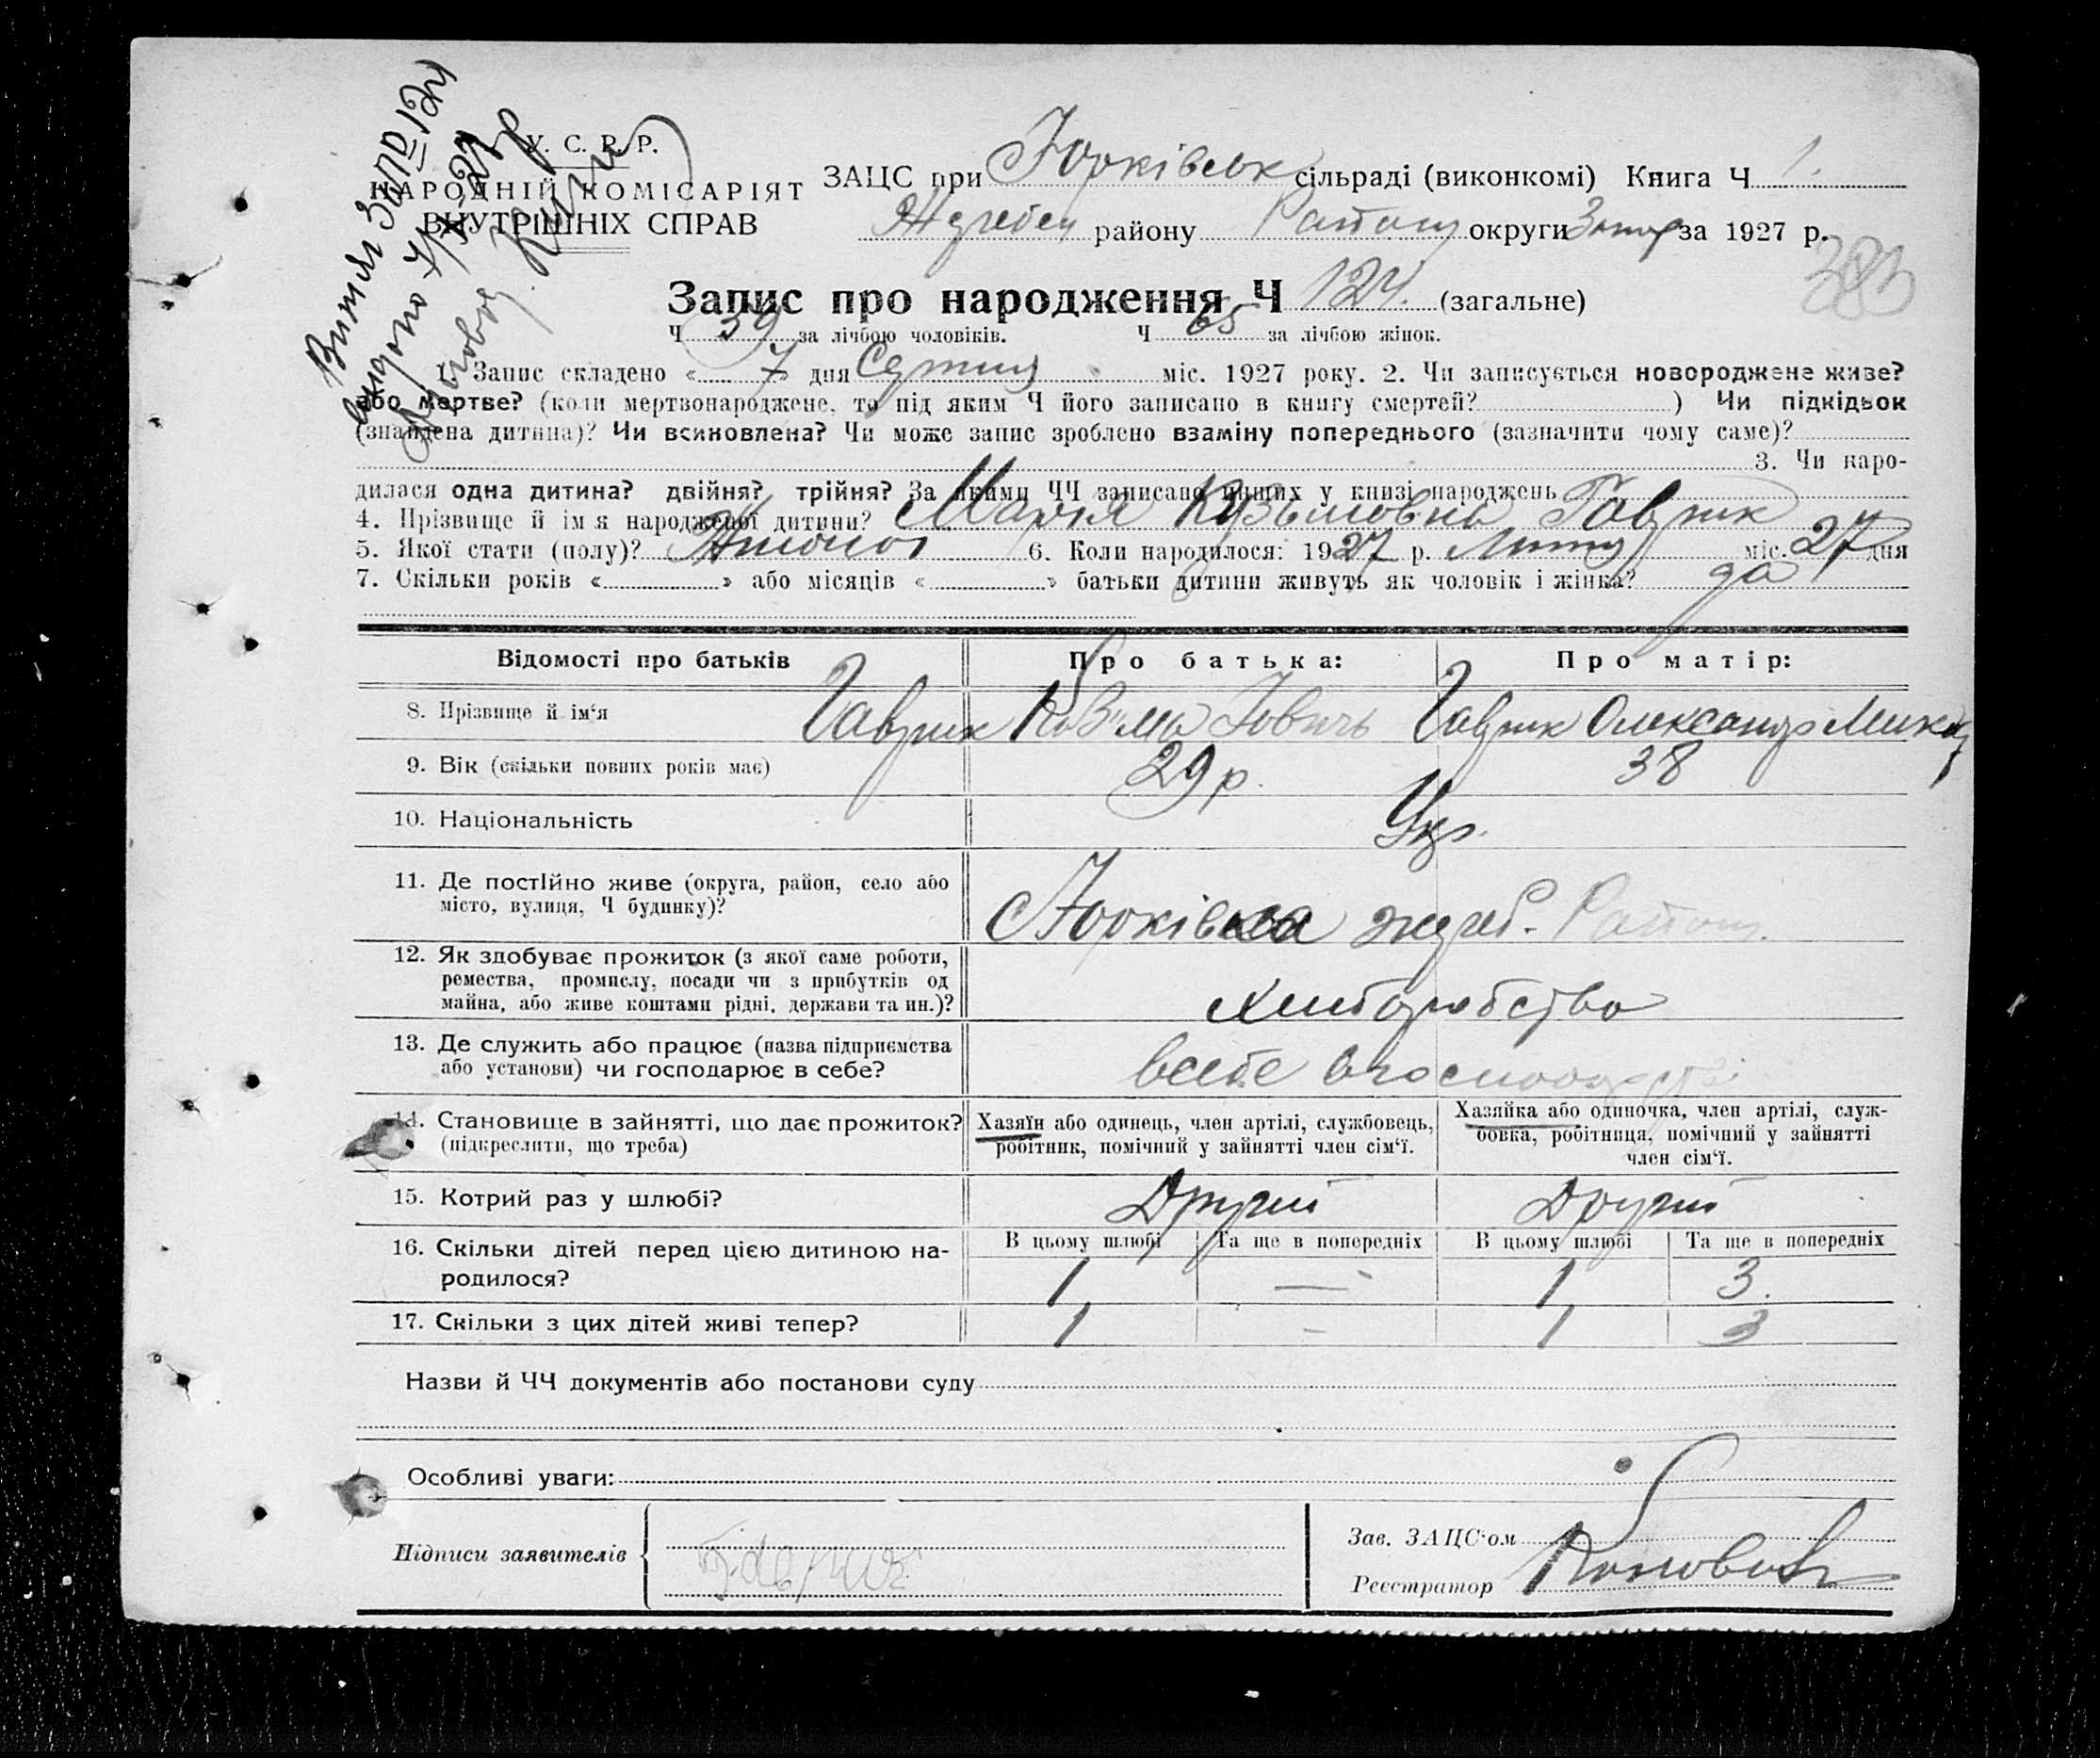 У. С. Р. Р.
НАРОДНІЙ КОМІСАРІЯТ
ВНУТРІШНІХ СПРАВ
ЗАЦС при Юрківськ сільраді (виконкомі) Книга Ч 1.
району округи за 1927 р.
383
Запис про народження Ч 124. (загальне)
Ч 59 за лічбою чоловіків. Ч 65 за лічбою жінок.
1. Запис складено « 7 » дня міс. 1927 року. 2. Чи записується новороджене живе?
або мертве? (коли мертвонароджене, то під яким Ч його записано в книгу смертей? ) Чи підкідьок
(знайдена дитина)? Чи всиновлена? Чи може запис зроблено взаміну попереднього (зазначити чому саме)?
3. Чи наро-
дилася одна дитина? двійня? трійня? За якими ЧЧ записано инших у книзі народжень
4. Прізвище й ім'я народженої дитини? Марія Кузьмовна Гаврик
5. Якої стати (полу)? Жіночої 6. Коли народилося: 1927 р. Лютого міс. 27 дня
7. Скільки років « » або місяців « » батьки дитини живуть як чоловік і жінка? да
Відомості про батьків Про батька: Про матір:
8. Прізвище й ім'я Гаврик Кузьма Іович Гаврик Олександра
9. Вік (скільки повних років має) 29 р. 38
10. Національність Укр.
11. Де постійно живе (округа, район, село або
місто, вулиця, Ч будинку)? Юрківка
12. Як здобуває прожиток (з якої саме роботи,
ремества, промислу, посади чи з прибутків од
майна, або живе коштами рідні, держави та ин.)? хліборобство
13. Де служить або працює (назва підприємства
або установи) чи господарює в себе? всебе
14. Становище в зайнятті, що дає прожиток?
(підкреслити, що треба)
Хазяїн або одинець, член артілі, службовець,
робітник, помічний у зайнятті член сім'ї.
Хазяйка або одиночка, член артілі, служ-
бовка, робітниця, помічний у зайнятті
член сім'ї.
15. Котрий раз у шлюбі? Другий Другий
16. Скільки дітей перед цією дитиною на-
родилося?
В цьому шлюбі Та ще в попередніх В цьому шлюбі Та ще в попередніх
1 — 1 3.
17. Скільки з цих дітей живі тепер? 1 - 1 3
Назви й ЧЧ документів або постанови суду
Особливі уваги:
Підписи заявителів
Зав. ЗАЦС'ом
Реєстратор